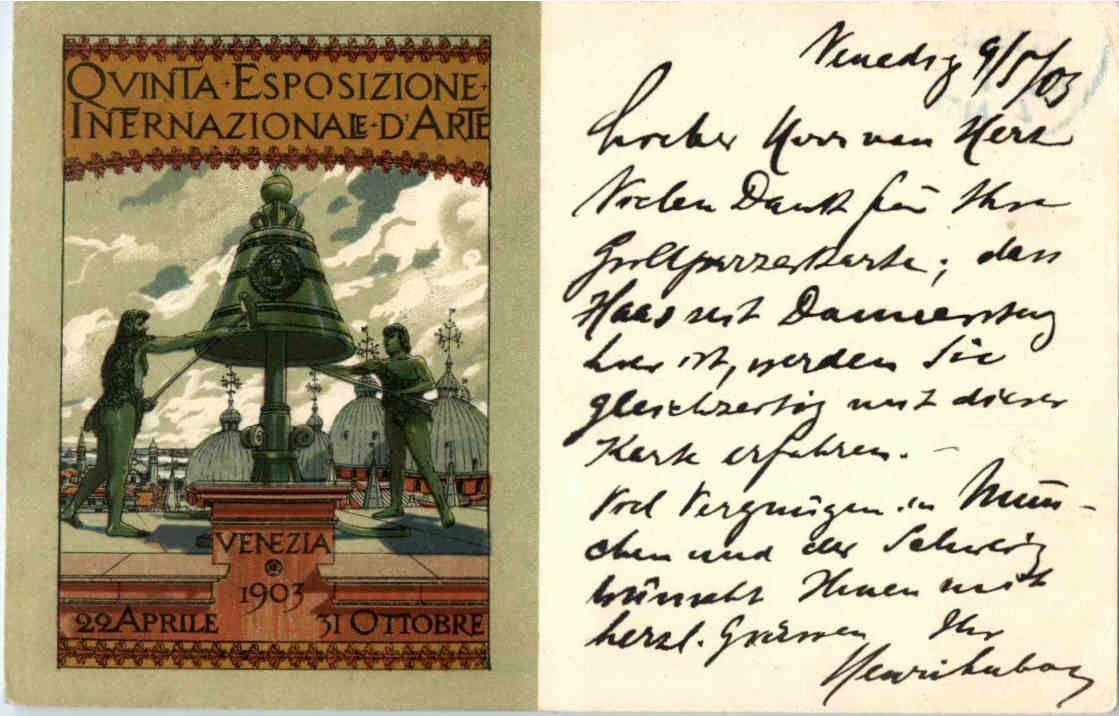 QVINTA·ESPOSIZIONE·
INTERNAZIONALE·D'ARTE
VENEZIA
1903
22 APRILE 31 OTTOBRE
Venedig 9/5/03
Lieber Herr van
Vielen Dank für Ihre
Grillparzerkarte; dass
Haas seit Donnerstag
hier ist, werden Sie
gleichzeitig mit dieser
Karte erfahren. –
Viel Vergnügen in Mün-
chen und der Schweiz
wünscht Ihnen mit
herzl. Grüssen Ihr